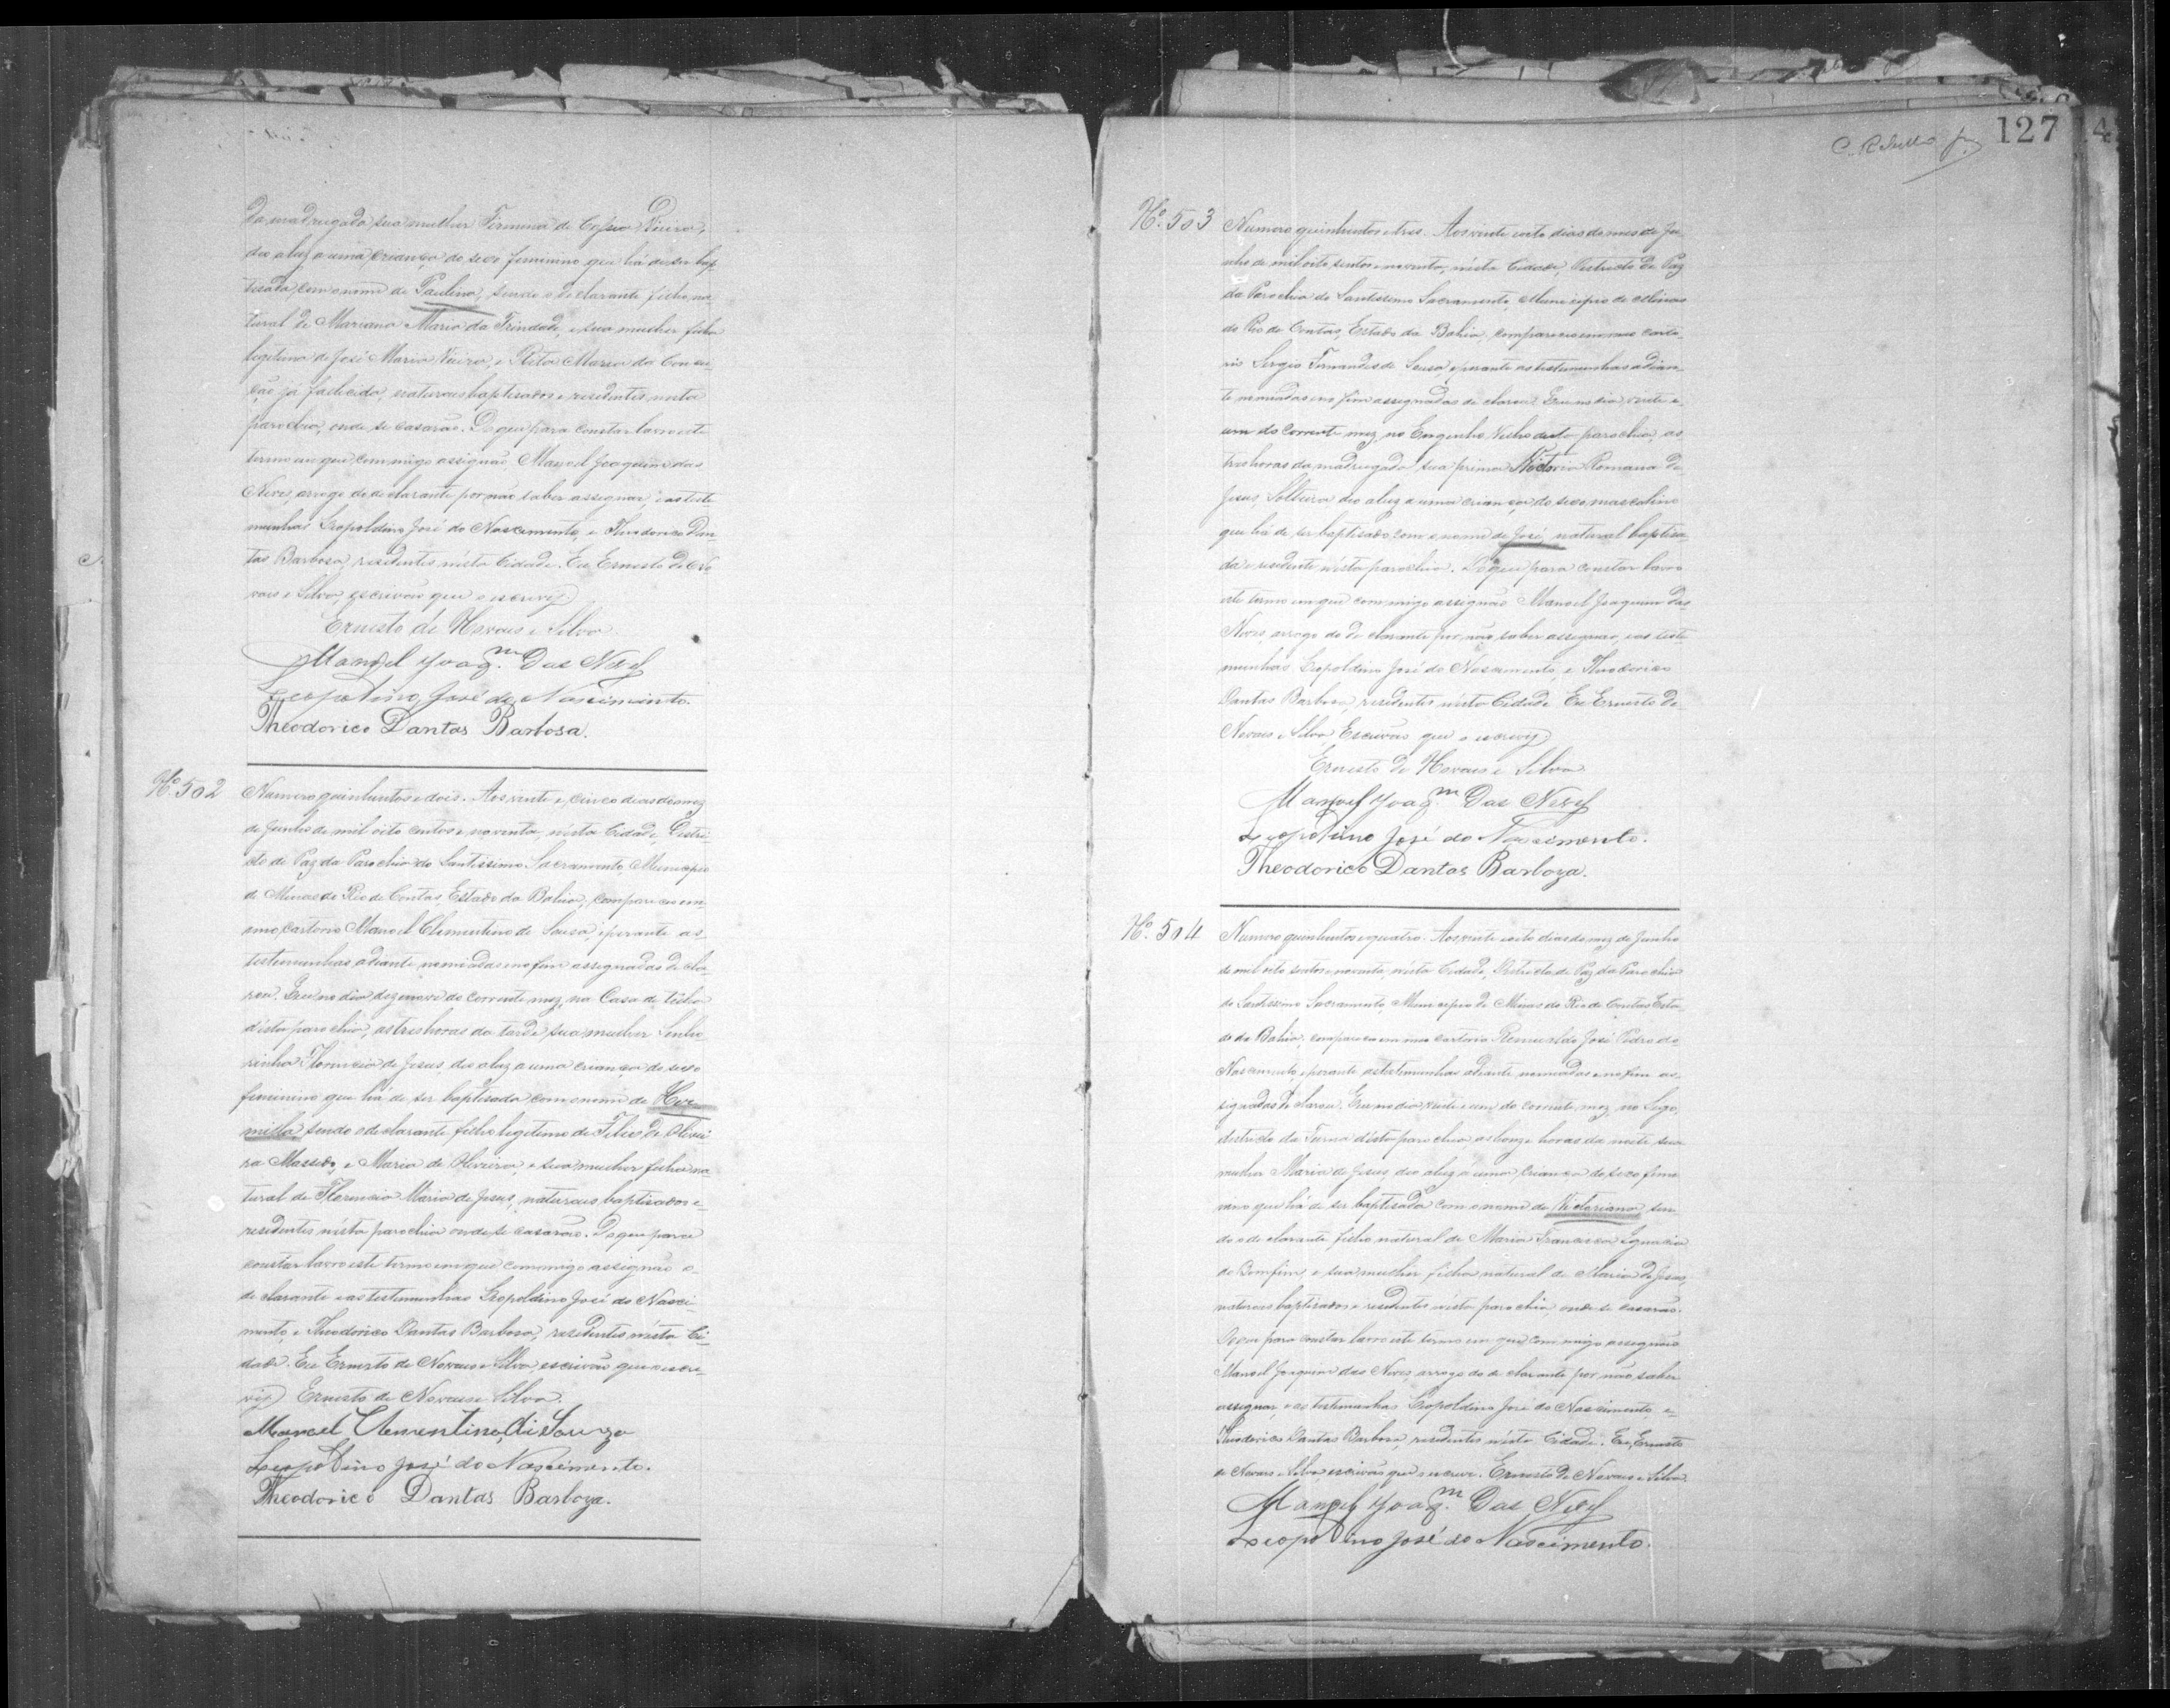 da madrugada sua mulher Firmina de Vieira,
deo a luz a uma criança do sexo feminino que há de ser bap
tisada com o nome de Paulina, sendo o declarante filho na
tural de Mariana Maria da Trindade, e sua mulher filha
legitima de José Maria Vieira, e Rita Maria da Concei
ção já fallecida, naturaes baptisados e residentes nesta
parochia, onde se casarão. Do que para constar lavro este
termo em que commigo assignão Manoel Joaquim das
Neves, arrogo do declarante por não saber assignar, e as teste
munhas Leopoldino José do Nascimento, e Theodorico Dan
tas Barbosa, residentes nésta Cidade. Eu Ernesto de No
vaes e Silva, escrivão que o escrevy
Ernesto de Novaes e Silva
Manoel Joaqm. Das Neves
Leopoldino José do Nascimento.
Theodorico Dantas Barbosa.
No. 502
Numero quinhentos e dois. Aos vinte e cinco dias do mez
de Junho de mil oito centos e noventa, nésta Cidade, Destri
cto de Paz da Parochia do Santissimo Sacramento, Municipio
de Minas do Rio de Contas, Estado da Bahia, compareceo em
meo cartorio Manoel Clementino de Sousa, e perante as
testemunhas adiante nomeadas e no fim assignadas decla
rou. Que no dia dezenove do corrente mez, na Casa de têlha
désta parochia, as tres horas da tarde, sua mulher Senho
rinha Florencia de Jesus, deo a luz a uma criança do sexo
feminino que há de ser baptisada com o nome de Her
milla, sendo o declarante filho legitimo de Felix de Olivei
ra Massedo, e Maria de Oliveira, e sua mulher filha na
tural de Florencia Maria de Jesus, naturaes baptisados e
residentes nésta parochia onde se casarão. Do que para
constar lavro este termo em que commigo assignão o
declarante e as testemunhas Leopoldino José do Nasci
mento, e Theodorico Dantas Barbosa, residentes nésta Ci
dade. Eu Ernesto de Novaes e Silva escrivão que o escre
vy Ernesto de Novaes e Silva.
Manoel Clementino di Souza
Leopoldino José do Nascimento.
Theodorico Dantas Barboza.
C. Rebello
127
No. 503
Numero quinhentos e tres. Aos vinte e oito dias do mes de Ju
nho de mil oito sentos e noventa, nésta Cidade, Destricto de Paz
da Parochia do Santissimo Sacramento, Municipio de Minas
do Rio de Contas, Estado da Bahia, compareceo em meo carto
rio Sergio Fernandes de Sousa, e perante as testemunhas adian
te nomiadas e no fim assignadas declarou. Que no dia vinte e
um do corrente mez, no Engenho Velho desta parochia as
tres horas da madrugada sua prima Victoria Romana de
Jesus, Solteira deo a luz a uma criança do sexo masculino
que há de ser baptisado com o nome de José, natural baptisa
da e residente nésta parochia. Do que para constar lavro
este termo em que commigo assignão Manoel Joaquim das
Neves arrogo do declarante por não saber assignar, e as teste
munhas Leopoldino José do Nascimento, e Theodorico
Dantas Barbosa, residentes nésta Cidade. Eu Ernesto de
Novaes e Silva Escrivão que o escrevy
Ernesto de Novaes e Silva
Manoel Joaqm. Das Neves
Leopoldino José do Nascimento.
Theodorico Dantas Barboza.
No. 504
Numero quinhentos e quatro. Aos vinte e oito dias do mez de Junho
de mil oito sentos e noventa, nésta Cidade, Destricto de Paz da Parochia
do Santissimo Sacramento, Municipio de Minas do Rio de Contas Esta
do da Bahia, compareceo em meo cartorio José Pedro do
Nascimento, e perante as testemunhas adiante nomeadas e no fim as
signadas declarou. Que no dia vinte e um do corrente mez, no Lugo,
destricto da Furna désta parochia as honze horas da noite sua
mulher Maria de Jesus, deo a luz a uma criança do sexo fimi
nino que há de ser baptisada com o nome de Victoriana, sen
do o declarante filho natural de Maria Francisca Ignacia
do Bomfim, e sua mulher filha natural de Maria de Jesus,
naturaes baptisados e residentes nésta parochia onde se casarão.
Do que para constar lavro este termo em que commigo assignão
Manoel Joaquim das Neves, arrogo do declarante por não saber
assignar, e as testemunhas Leopoldino José do Nascimento e
Theodorico Dantas Barbosa, residentes nésta Cidade. Eu, Ernesto
de Novaes e Silva escrivão que o escrevi. Ernesto de Novaes e Silva.
Manoel Joaqm. Das Neves
Leopoldino José do Nascimento.